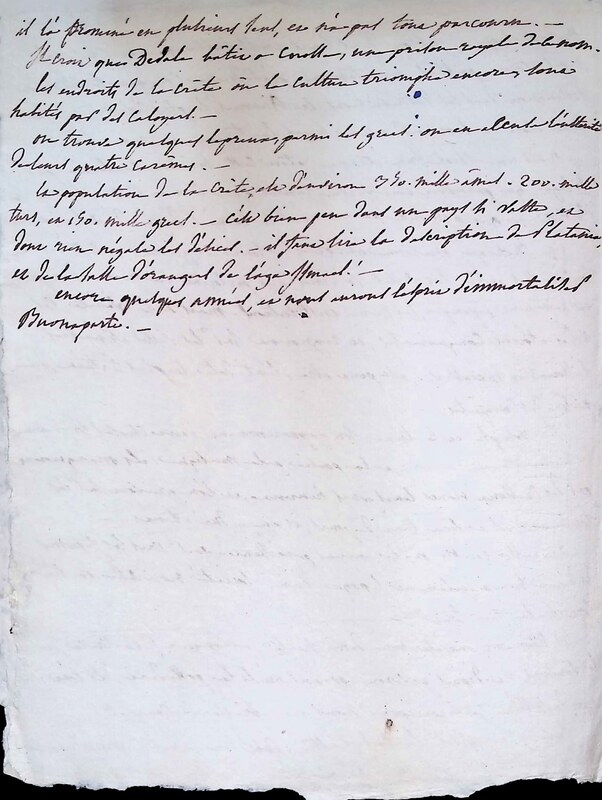 il l'a promené en plusieurs sens, et n'a pas tout parcouru. —
St Croix que Dédale bâtit a une prison royale de ce nom.
les endroits de la Crète où la culture triomphe encore, sont
habités par des Caloyers. —
on trouve quelques lepreux, parmi les grecs. on en accuse l'austérité
de leurs quatre carêmes. —
la population de la Crète, est d'environ 350. mille âmes. 200. mille
turcs, et 150. mille grecs. — c'est bien peu dans un pays si vaste, et
dont rien n'égale les délices. — il faut lire la description de Platanie
et de la salle d'orangers de l'aga Ismael. —
encore quelques années, et nous aurons l'esprit d'immortalité
Buonaparte. —